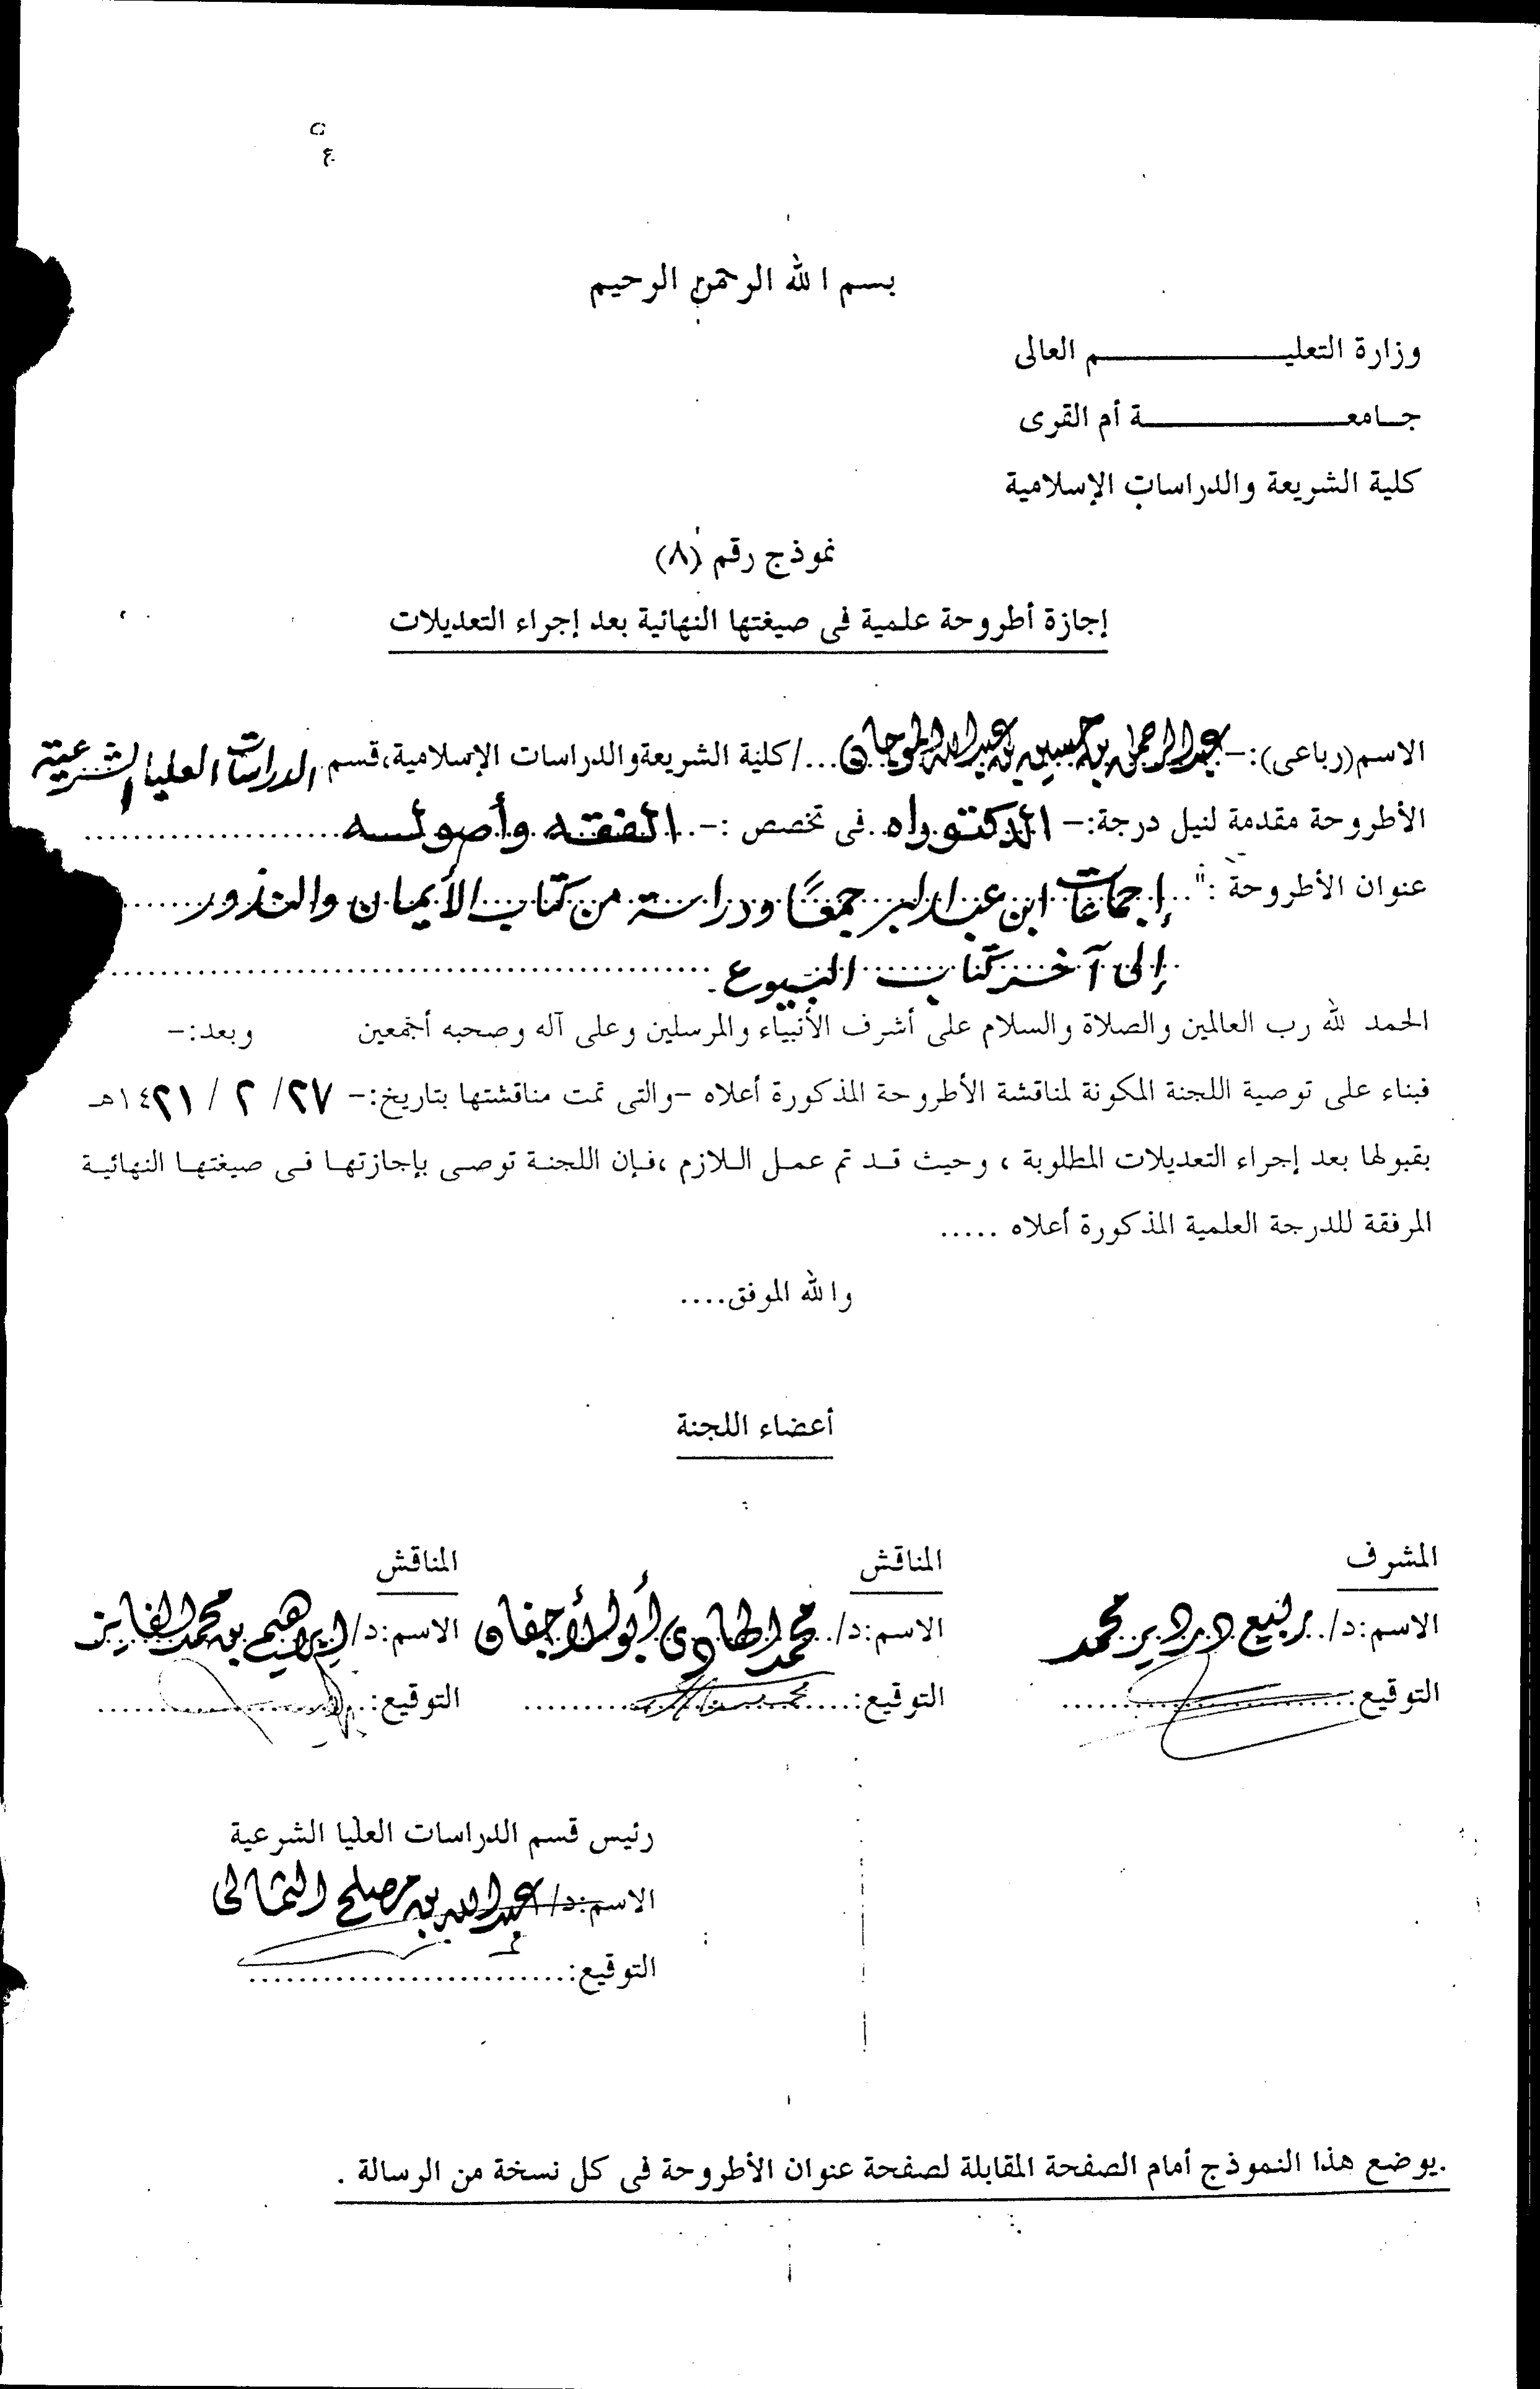 بسم الله الرحمن الرحيم
وزارة التعليم العالى
جامعة أم القرى
كلية الشريعة والدراسات الإسلامية
نموذج رقم (٨)
إجازة أطروحة علمية فى صيغتها النهائية بعد إجراء التعديلات
الاسم(رباعى):- عبدالرحمن بن حسين بن عبدالله الموجان.../كلية الشريعة والدراسات الإسلامية،قسم الدراسات العليا الشرعية
الأطروحة مقدمة لنيل درجة:- الدكتوراه..فى تخصص :-..الفقه وأصوله....................
عنوان الأطروحة :"..إجماعات ابن عبدالبر جمعًا ودراسة من كتاب الأيمان والنذور.......
إلى آخر كتاب البيوع.
الحمد لله رب العالمين والصلاة والسلام على أشرف الأنبياء والمرسلين وعلى آله وصحبه أجمعين وبعد:-
فبناء على توصية اللجنة المكونة لمناقشة الأطروحة المذكورة أعلاه -والتى تمت مناقشتها بتاريخ:- ٢٧/ ٢ / ١٤٢١هـ
بقبولها بعد إجراء التعديلات المطلوبة ، وحيث قد تم عمل اللازم ،فإن اللجنة توصى بإجازتها فى صيغتها النهائية
المرفقة للدرجة العلمية المذكورة أعلاه .....
والله الموفق....
أعضاء اللجنة
المشرف المناقش المناقش
الاسم:د/..ربيع دردير محمد الاسم:د/..محمد الهادي أبو الأجفان الاسم:د/إبراهيم بن محمد الفايز
التوقيع:.......................... التوقيع:.......................... التوقيع:..........................
رئيس قسم الدراسات العليا الشرعية
الاسم:د/ عبدالله بن مصلح الثمالي
التوقيع:..........................
.يوضع هذا النموذج أمام الصفحة المقابلة لصفحة عنوان الأطروحة فى كل نسخة من الرسالة .